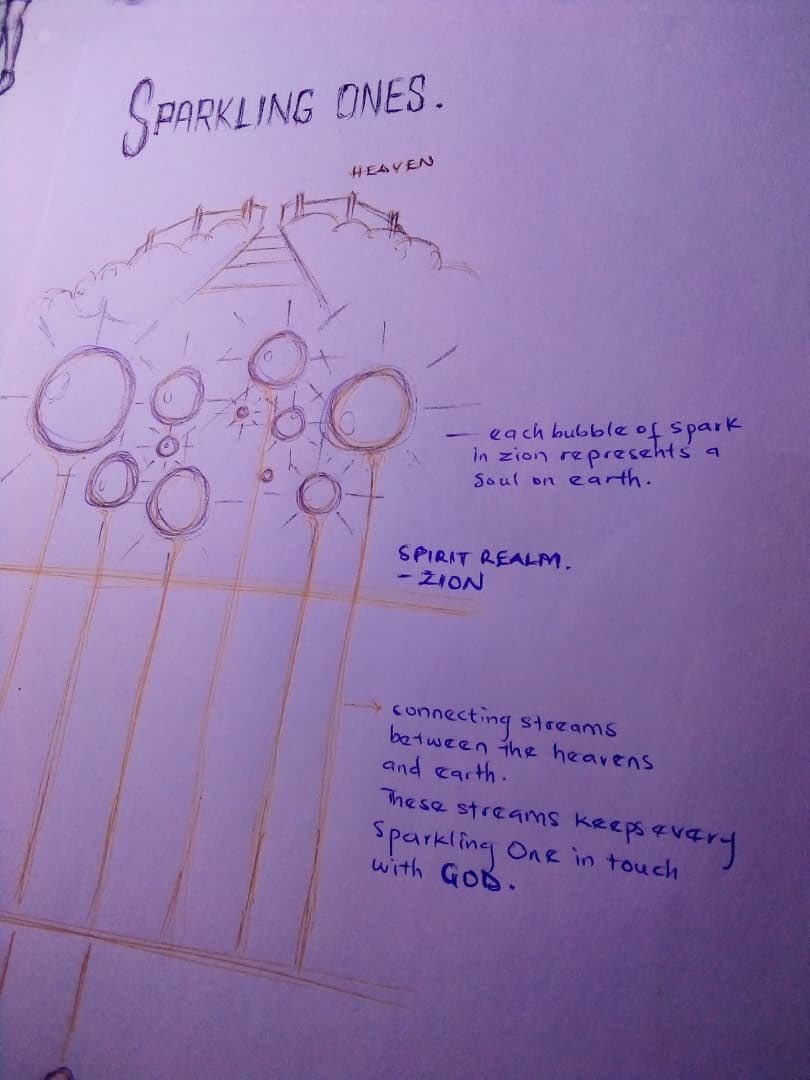 SPARKLING ONES.
HEAVEN
— each bubble of spark
in zion represents a
Soul on earth.
SPIRIT REALM.
- ZION
connecting streams
between the heavens
and earth.
These streams keeps every
Sparkling One in touch
with GOD.